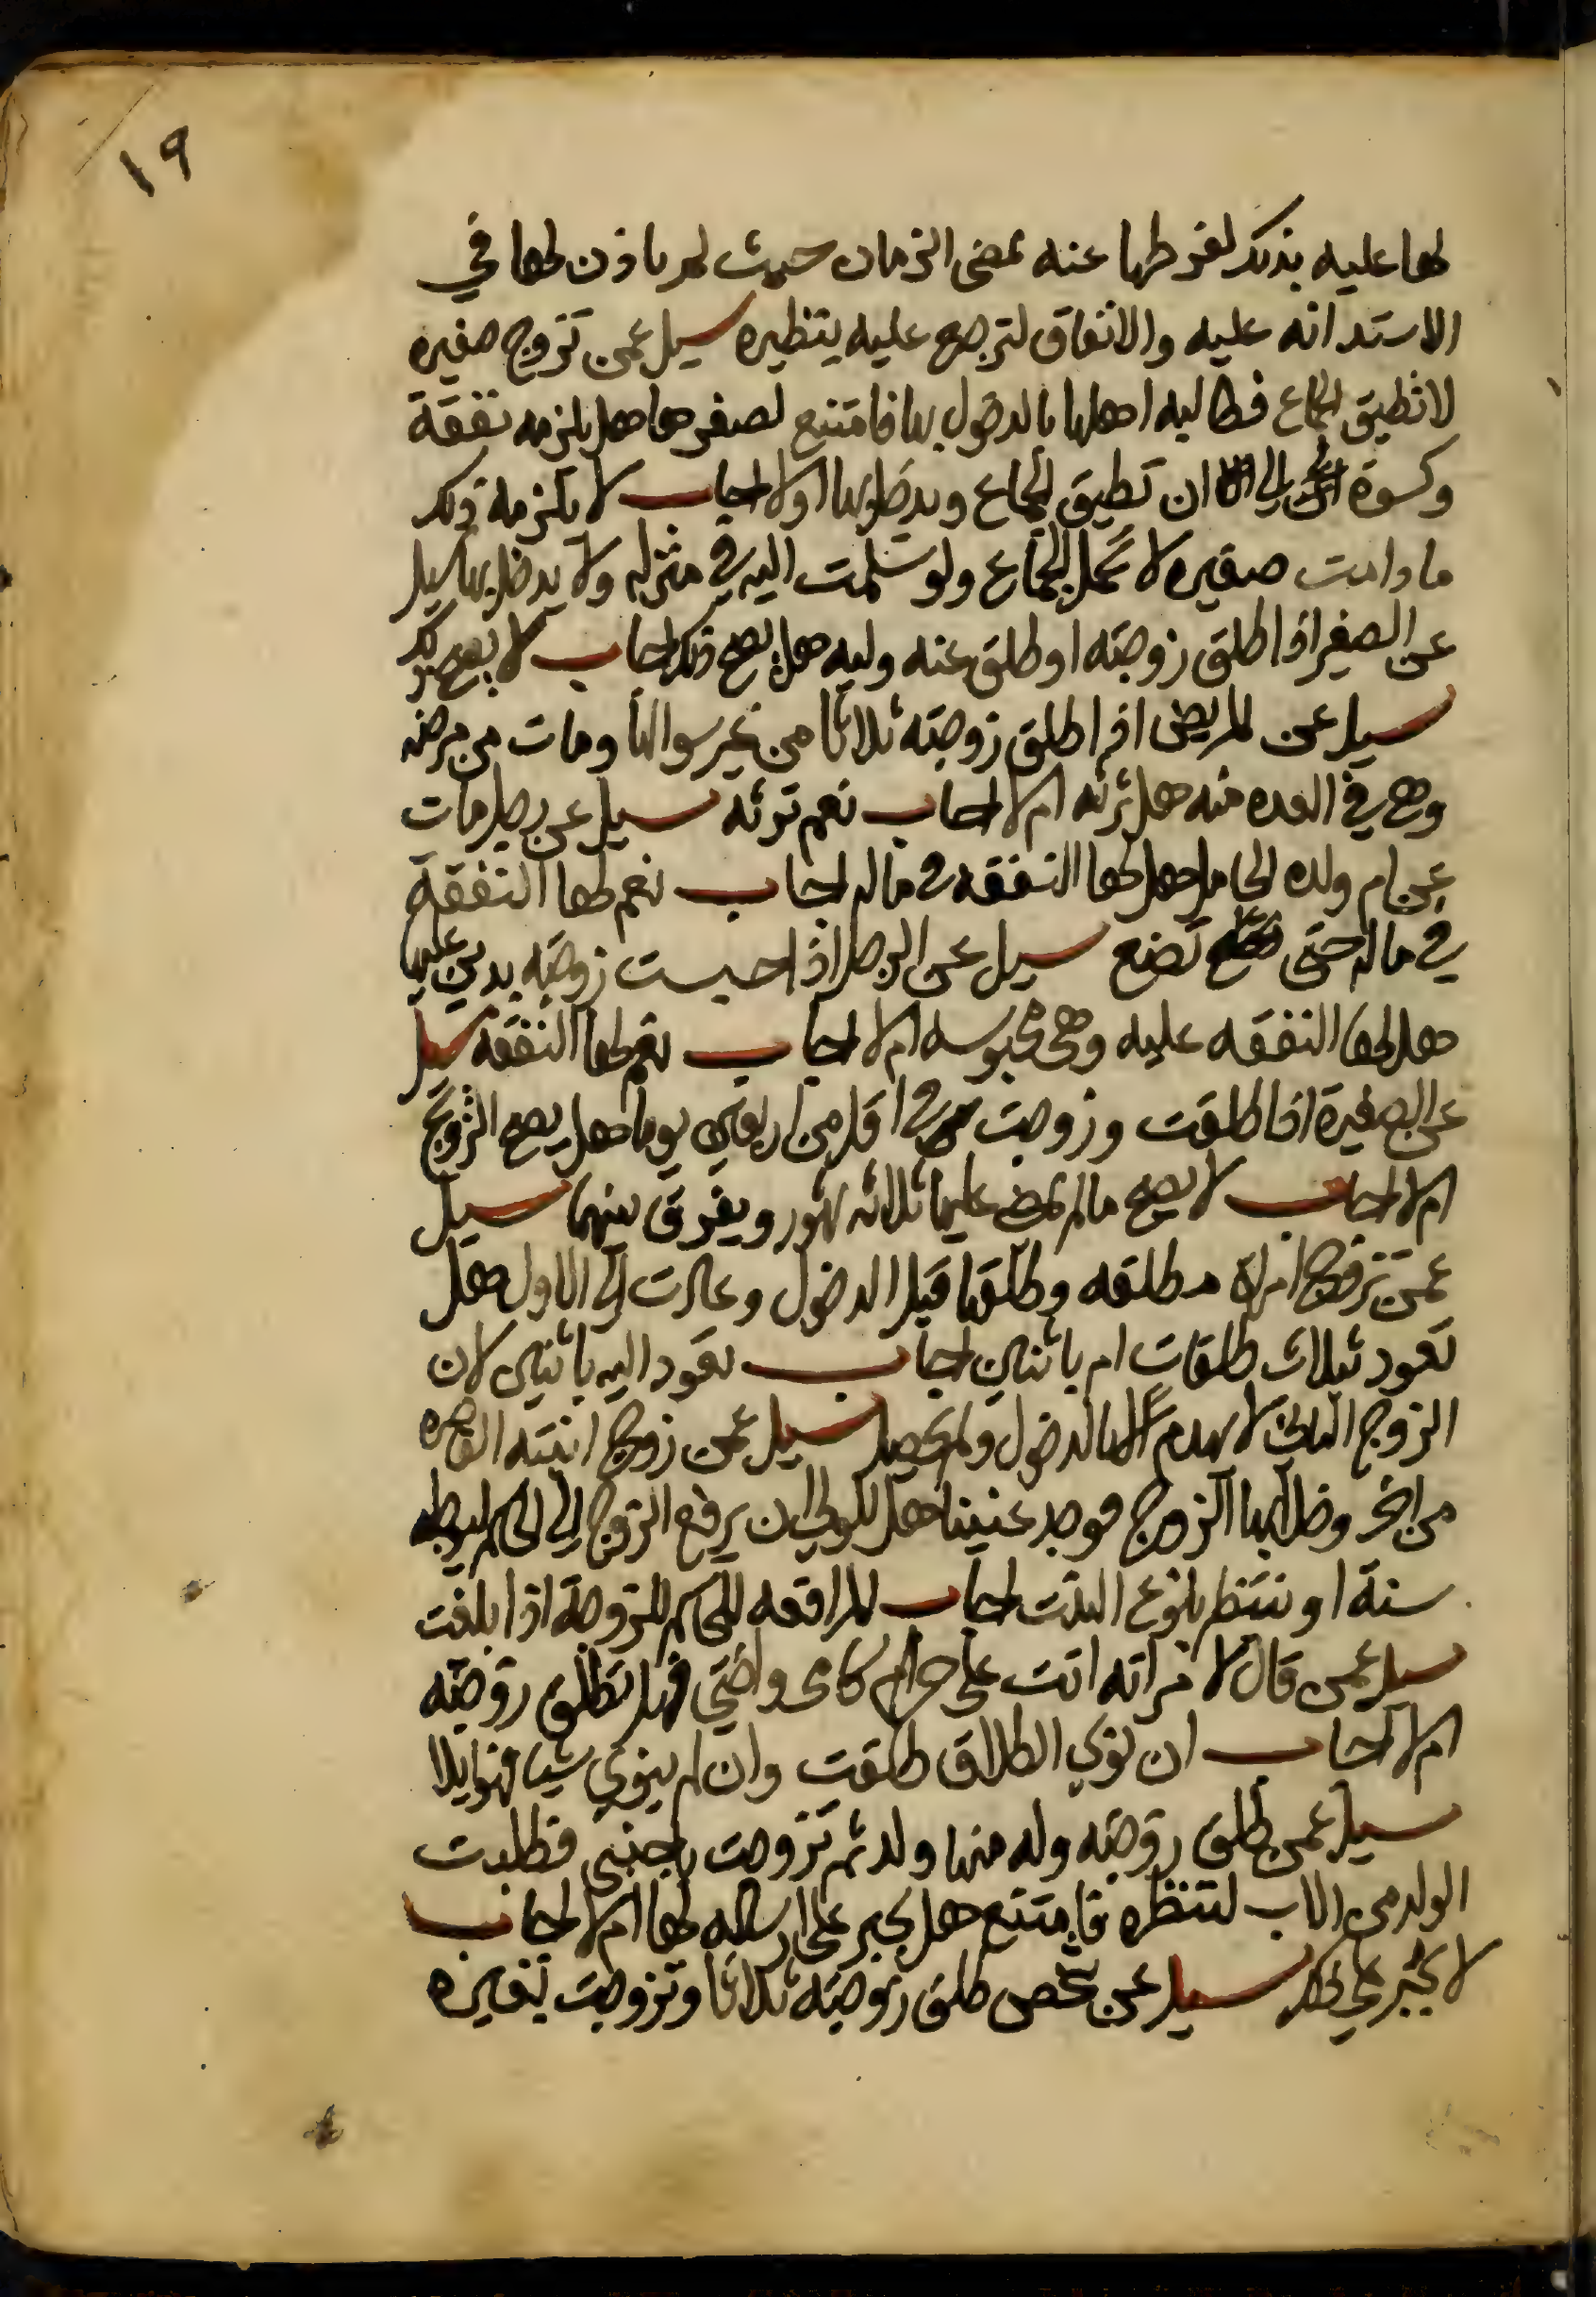 ١٩
لها عليه بذلك لغرطها عنه بمضى الزمان حيث لم ياذن لها في
الاستدانه عليه والانفاق لترجع عليه بنظيره سيل عمن تزوج صغيره
لا تطيق الجماع فطالبه اهلها بالدخول بها فامتنع لصغرها هل يلزمه نفقة
وكسوة الى ان تطيق الجماع ويدخل بها اولا اجاب لا يلزمه ذلك
ما دامت صغيره لا تحمل الجماع ولو سلمت اليه في منزله ولا يدخل بها سيل
عن الصغير اذا طلق زوجته او طلق عنه وليه هل يصح ذلك اجاب لا يصح ذلك
سيل عن المريض اذا طلق زوجته ثلاثا من غير سوالها ومات من مرضه
وهى في العده منه هل ترثه ام لا اجاب نعم ترثه سيل عن رجل مات
عن ام ولده الحامل هل لها النفقه في ماله اجاب نعم لها النفقة
في ماله حتى تضع سيل عن الرجل اذا حبست زوجته بدين عليها
هل لها النفقه عليه وهى محبوسه ام لا اجاب نعم لها النفقه سيل
عن الصغيرة اذا طلقت وزوجت في اقل من اربعين يوما هل يصح التزويج
ام لا اجاب لا يصح مالم تمض عليها ثلاثه شهور ويفرق بينهما سيل
عمن تزوج امراة مطلقه وطلقها قبل الدخول وعادت الى الاول هل
تعود بثلاث طلقات ام باثنين اجاب تعود اليه باثنين لان
الزوج الثاني لا يهدم الا بالدخول ولم يحصل سيل عمن زوج ابنته القاصره
من اخر ودخل بها الزوج فوجد عنينا هل للولي ان يرفع الزوج الى الحاكم ليوجله
سنة او ننتظر بلوغ البنت اجاب المرافعه للحاكم للزوجة اذا بلغت
سيل عمن قال لامراته انت علي حرام كامى واختي فهل تطلق زوجته
ام لا اجاب ان نوي الطلاق طلقت وان لم ينوي شيا فهو ايلا
سيل عمن طلق زوجته وله منها ولد ثم تزوجت باجنبى فطلبت
الولد من الاب لتنظره فامتنع هل يجبر على ارساله لها ام لا اجاب
لا يجبر على ذلك سيل عن شخص طلق زوجته ثلاثا وتزوجت بغيره